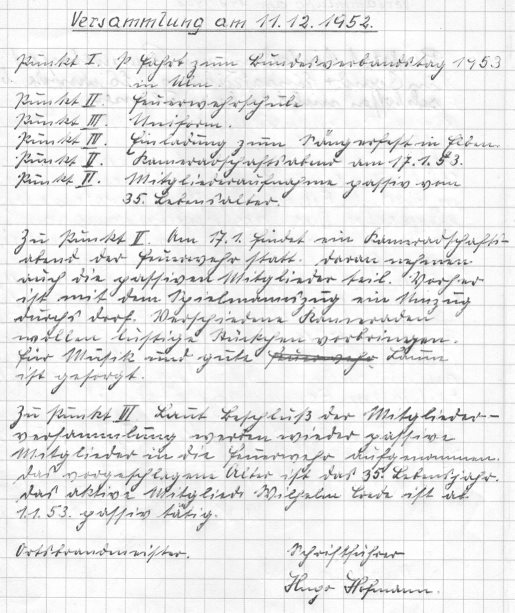 Versammlung am 11.12.1952.
Punkt I. Fahrt zum Bundesverbandstag 1953
in Ulm.
Punkt II Feuerwehrschule
Punkt III. Uniform.
Punkt IV. Einladung zum Sängerfest in Elben.
Punkt V. Kameradschaftsabend am 17.1.53.
Punkt VI. Mitgliederaufnahme passiv vom
35. Lebensalter.
Zu Punkt V. Am 17.1. findet ein Kameradschafts-
abend der Feuerwehr statt. daran nehmen
auch die passiven Mitglieder teil. Vorher
ist mit dem Spielmannszug ein Umzug
durchs Dorf. Verschiedene Kameraden
wollen lustige Stückchen vorbringen.
Für Musik und gute Feuerwehr Laune
ist gesorgt.
Zu Punkt VI Laut Beschluß der Mitglieder-
versammlung werden wieder passive
Mitglieder in die Feuerwehr aufgenommen.
das vorgeschlagene Alter ist das 35. Lebensjahr.
das aktive Mitglied Wilhelm ist ab
1.1.53. passiv tätig.
Ortsbrandmeister. Schriftführer
Hugo Hofmann.